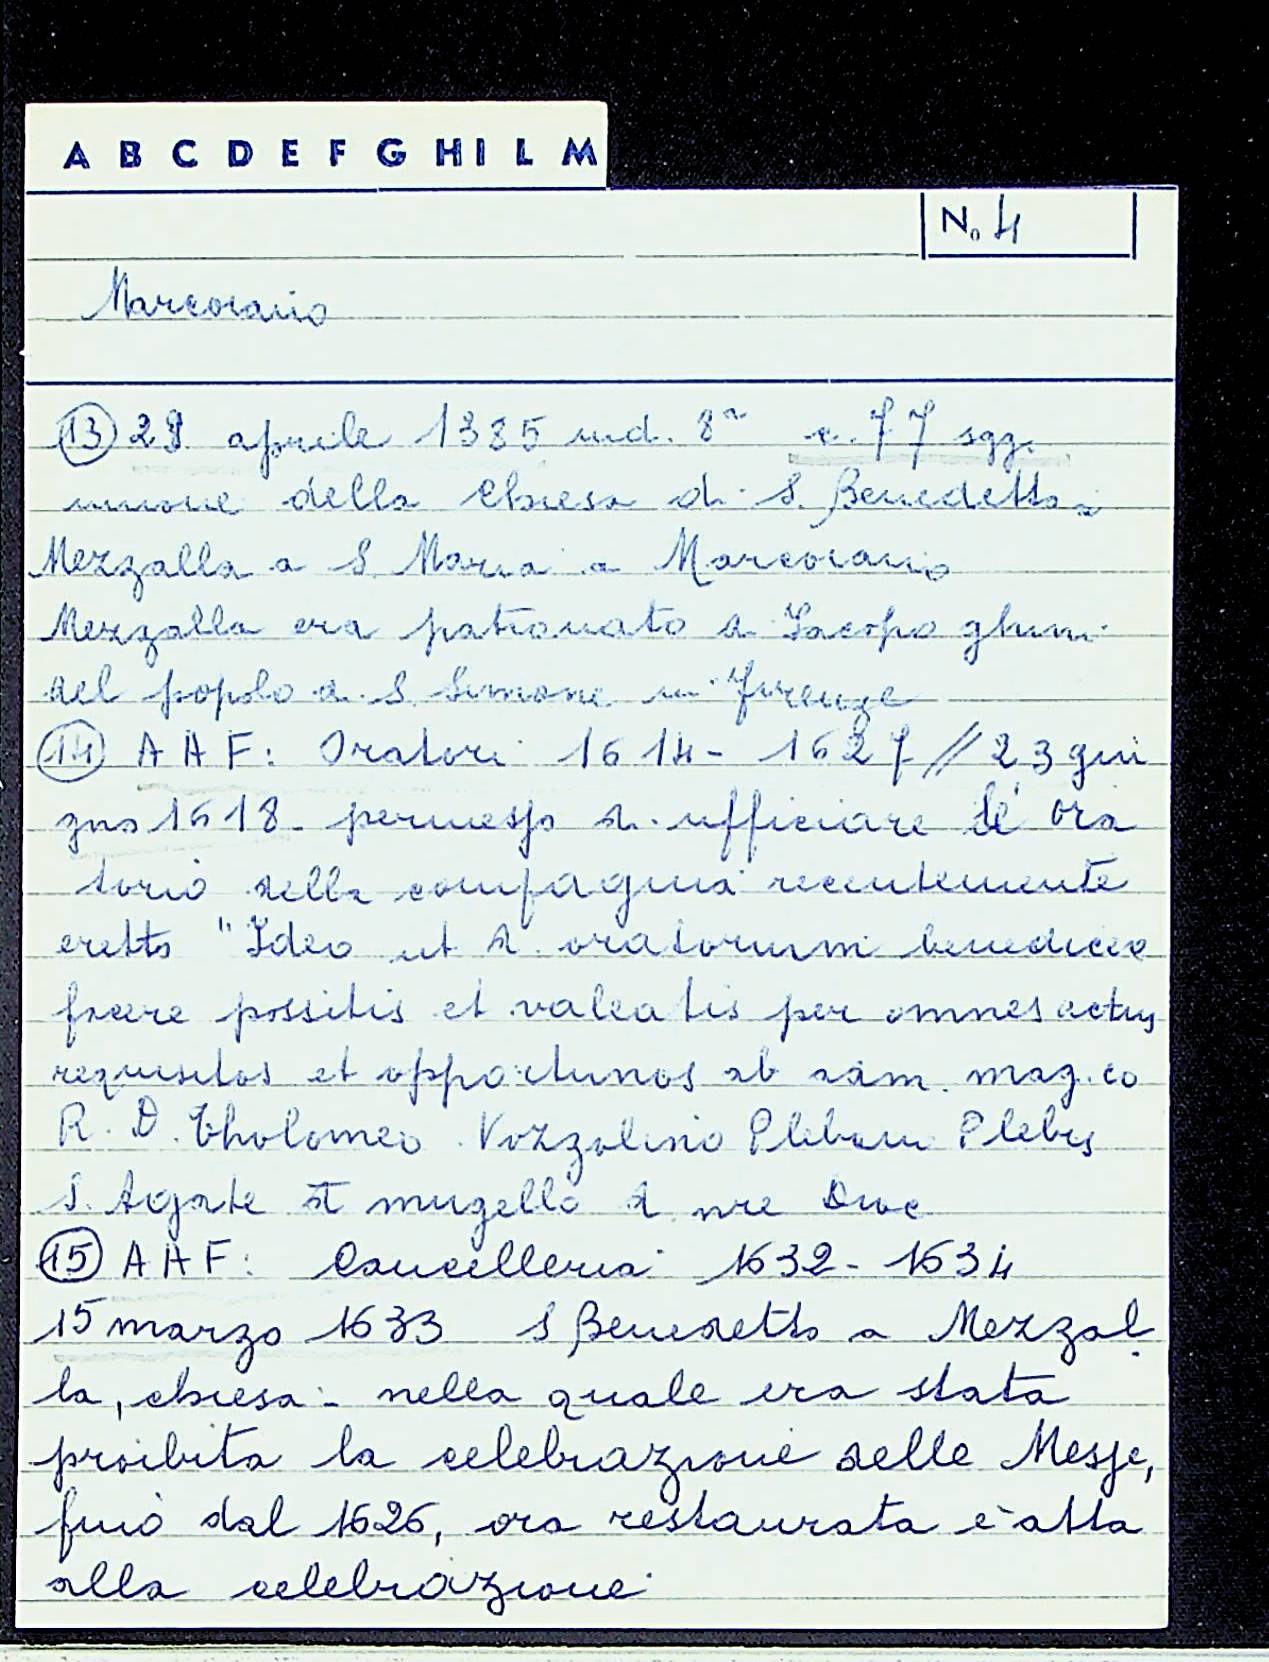 A B C D E F G H I L M
No 4
Marcoiano
13 28 aprile 1385 ind. 8a c. 77 sgg.
unione della Chiesa di S. Benedetto a
Mezzalla a S. Maria a Marcoiano
Mezzalla era patronato di Iacopo ghini
del popolo di S. Simone in Firenze
14 A A F: Oratori 1614 - 1627 // 23 giu
gno 1618 - permesso di ufficiare l'ora
torio della compagnia recentemente
eretto "Ideo ut d. oratorium benedicere
facere possitis et valeatis per omnes actus
requisitos et opportunos ab adm. mag.co
R. D. Tholomeo Nozzolino Plebani Plebis
S. Agate mugello d. nre Dioc
15 A A F: Cancelleria 1632 - 1634
15 marzo 1633 S Benedetto a Mezzal
la, chiesa - nella quale era stata
proibita la celebrazione delle Messe,
fino dal 1626, ora restaurata è atta
alla celebrazione